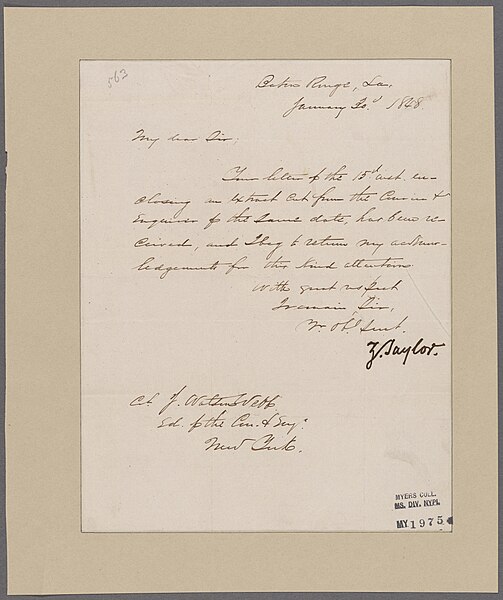 563
Baton Rouge, La.
January 30.d 1848.
My dear Sir;
Your letter of the 15th inst. en-
closing an extract cut from the Courier &
Enquirer of the same date, has been re-
ceived, and I beg to return my acknow-
ledgements for this kind attention.
With great respect
I remain, Sir,
Yr. Obt. Servt.
Z. Taylor.
J. Watson Webb
Ed. of the Cou. & Enqr.
New York.
MYERS COLL.
MS. DIV. NYPL
MY 1975